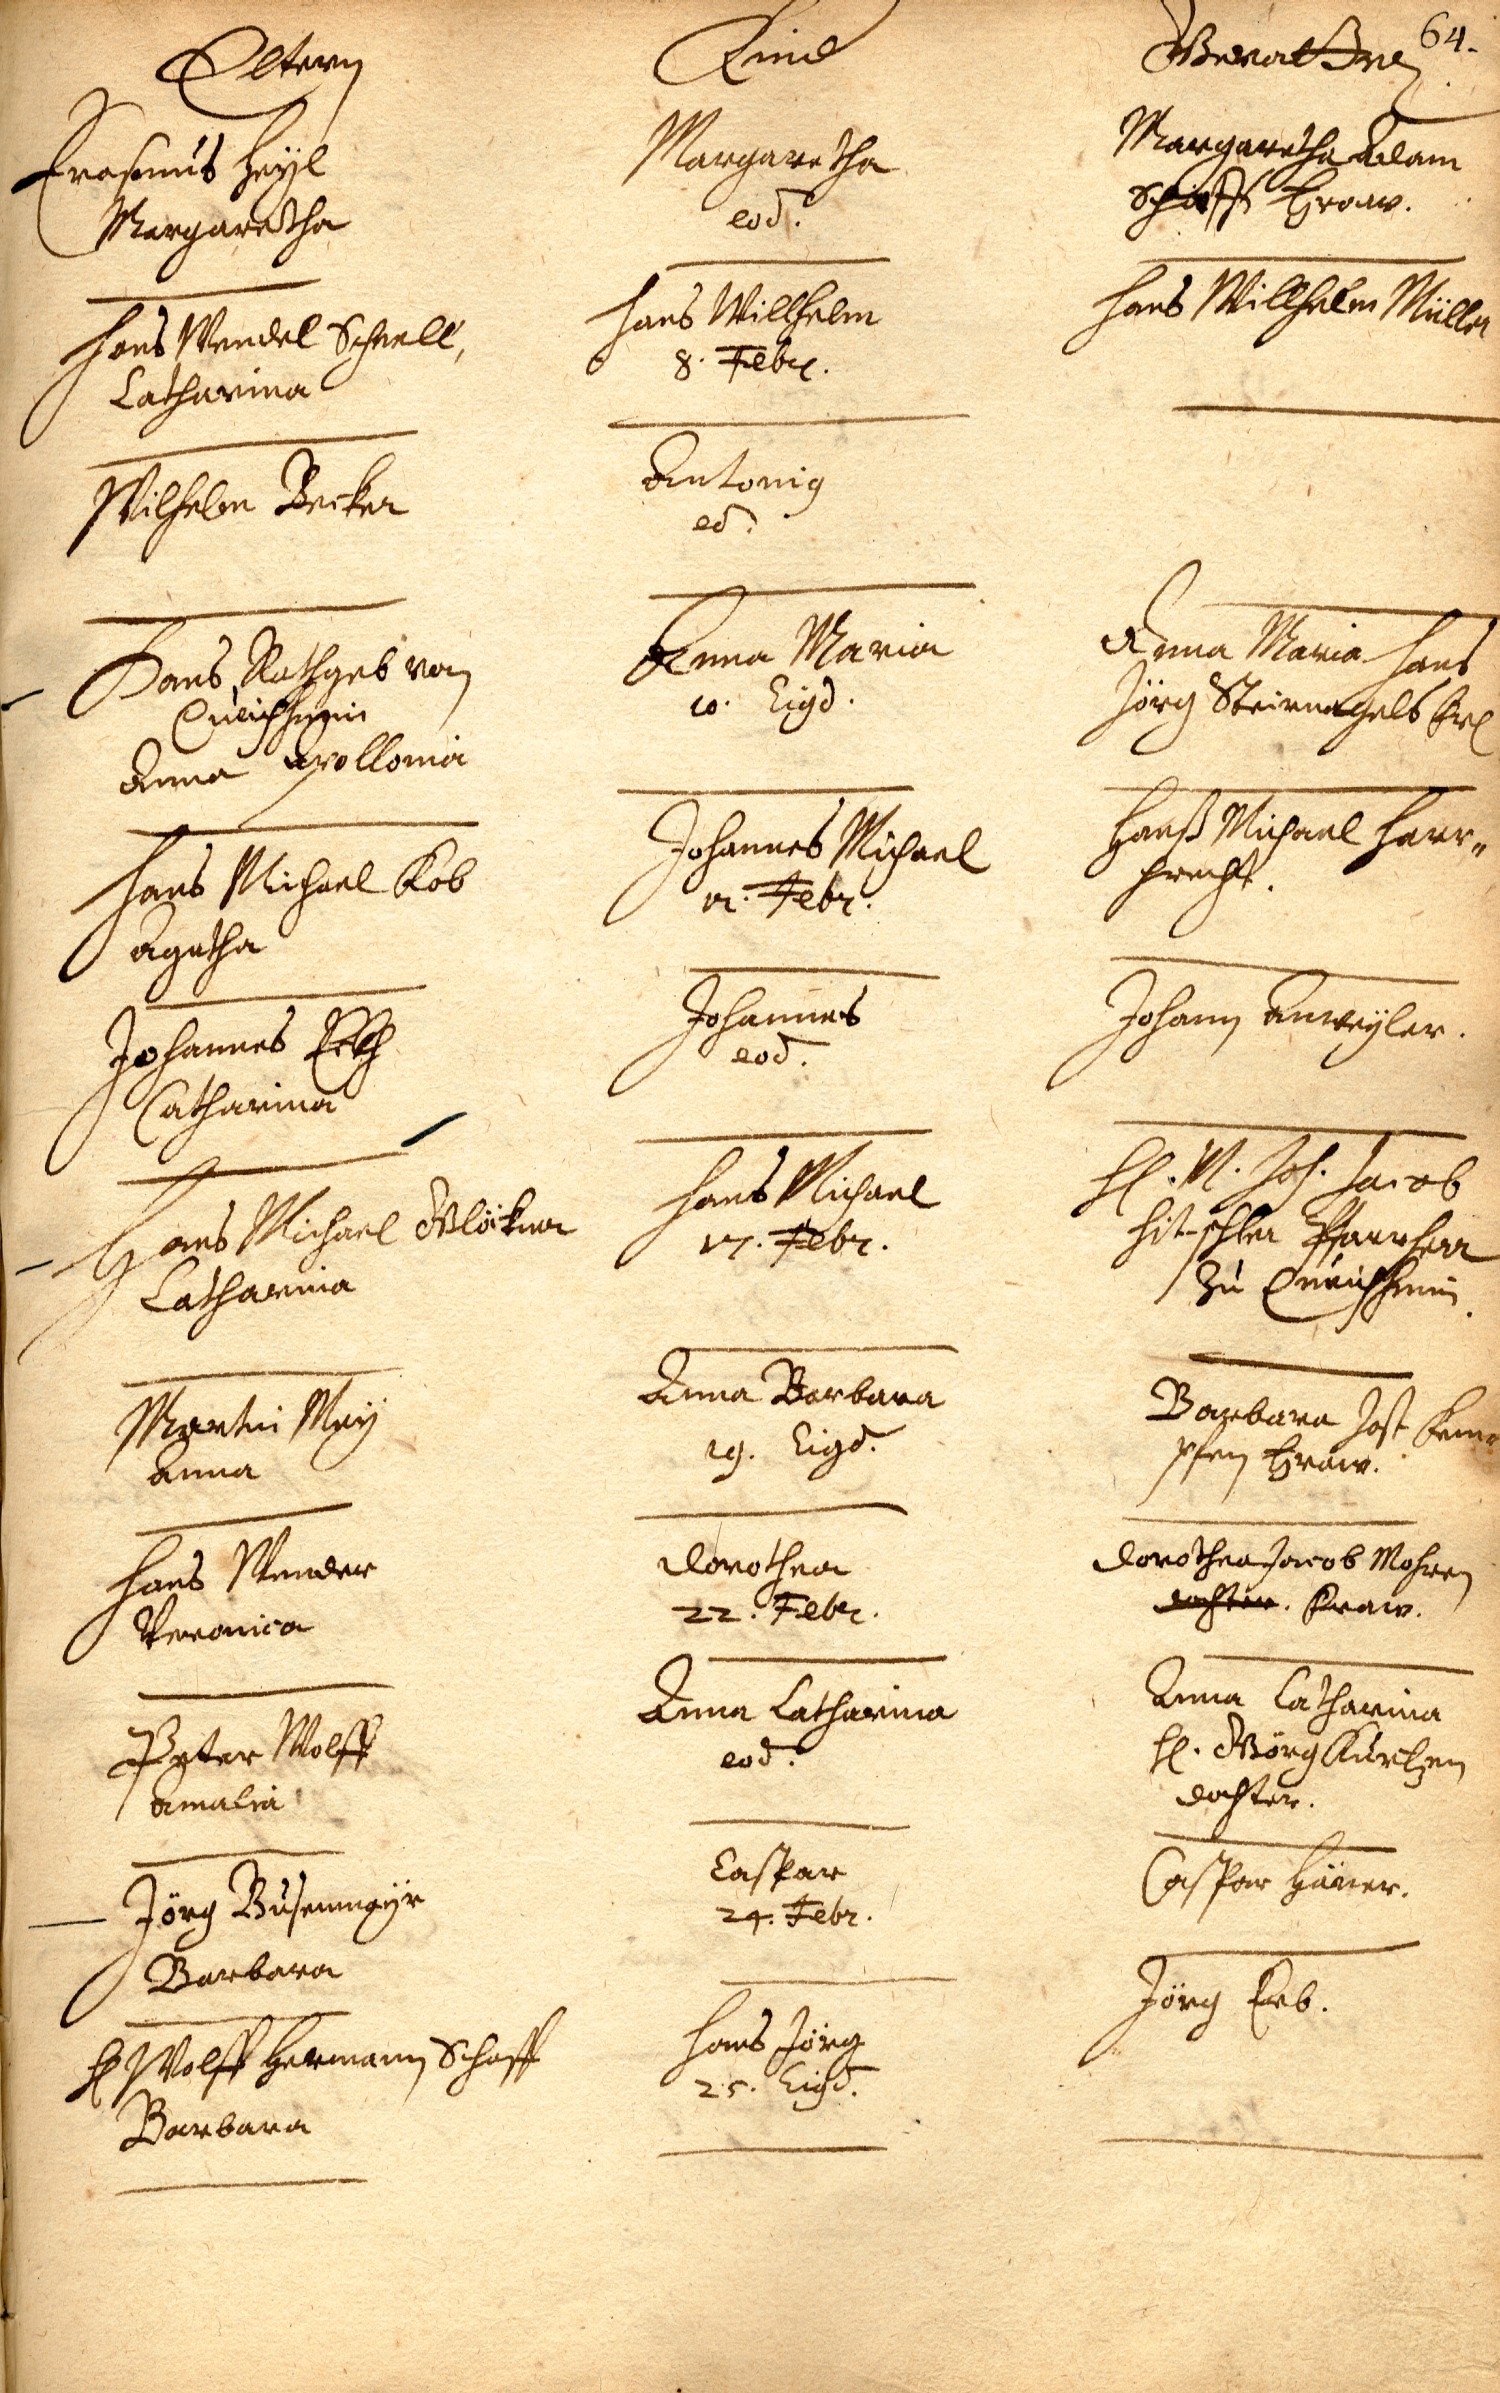 64.
Eltern
Kind
Gevattere
Erasmus Heyl
Margaretha
Margaretha
eod.
Margaretha Adam
Fraw.
Hans Wendel Schnell,
Catharina
Hans Willhelm
8. Febr.
Hans Willhelm Müller
Wilhelm Becker
Antonig
eod.
Hans Rathgeb von
Anna Apollonia
Anna Maria
10. Eigd.
Anna Maria Hans
Jörg Steirnagels
Hans Michael Kob
Agatha
Johannes Michael
12. Febr.
Hanß Michael Harr„
precht.
Johannes
Catharina
Johannes
eod.
Johann Anweyler.
Hans Michael Glöckner
Catharina
Hans Michael
17. Febr.
H. M. Joh. Jacob
Hitschler Pfarrherr
zu
Martin Mey
Anna
Anna Barbara
19. Eigd.
Barbara Jost
Fraw.
Hans Wender
Veronica
Dorothea
22. Febr.
Dorothea Jacob Mohren
dochter. Fraw.
Peter Wolff
Amalia
Anna Catharina
eod.
Anna Catharina
H. Görg Kurtzen
dochter.
Jörg Busenmayr
Barbara
Caspar
24. Febr.
Caspar
H Wolff Hermann Schaff
Barbara
Hans Jörg
25. Eigd.
Jörg Erb.